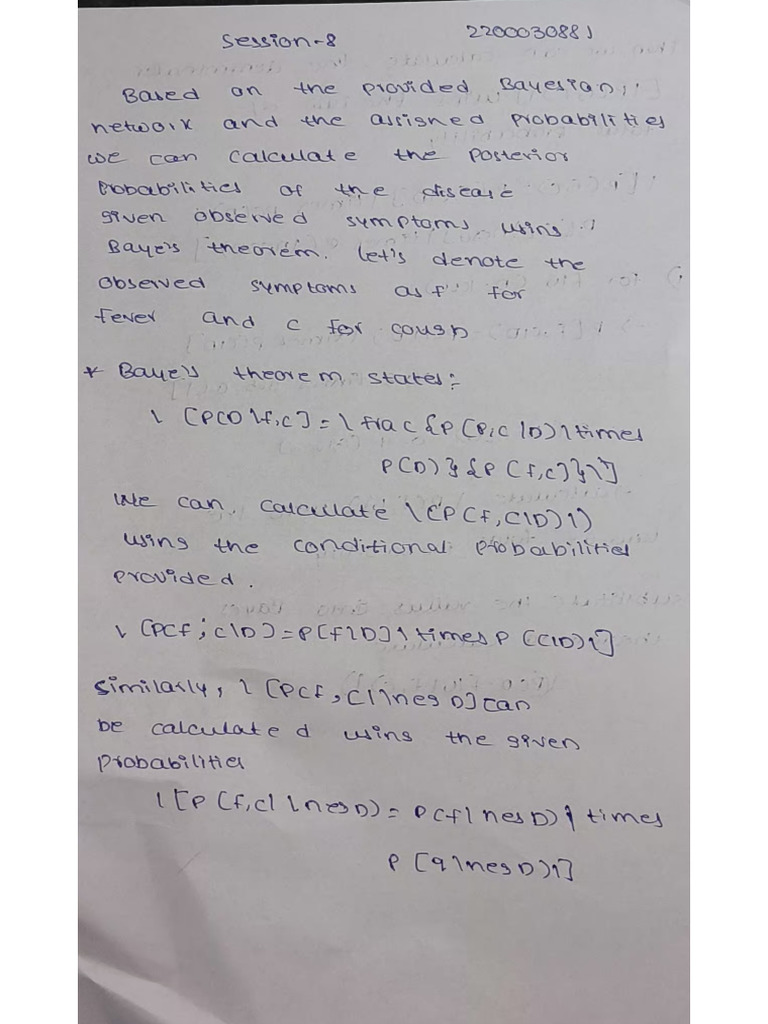 Session-8 2200030881
Based on the provided Bayesian,
network and the assigned probabilities
we can calculate the posterior
probabilities of the disease
given observed symptoms using
Baye's theorem. let's denote the
observed symptoms as f for
fever and c for cough
* Baye's theorem states:
\ [P(D\f,c] = \ frac {P (P,c |D) \times
P(D) } {P (f,c)}\]
We can calculate \(P(f,c|D)\)
using the conditional probabilities
provided.
\ [P(f,c|D) = P(f|D) \times P (c|D)\]
similarly, \ [P(f,c|\neg D] can
be calculated using the given
probabilities
\ [P (f,c| \neg D) = P(f|\neg D) \times
P [9|\neg D)\]